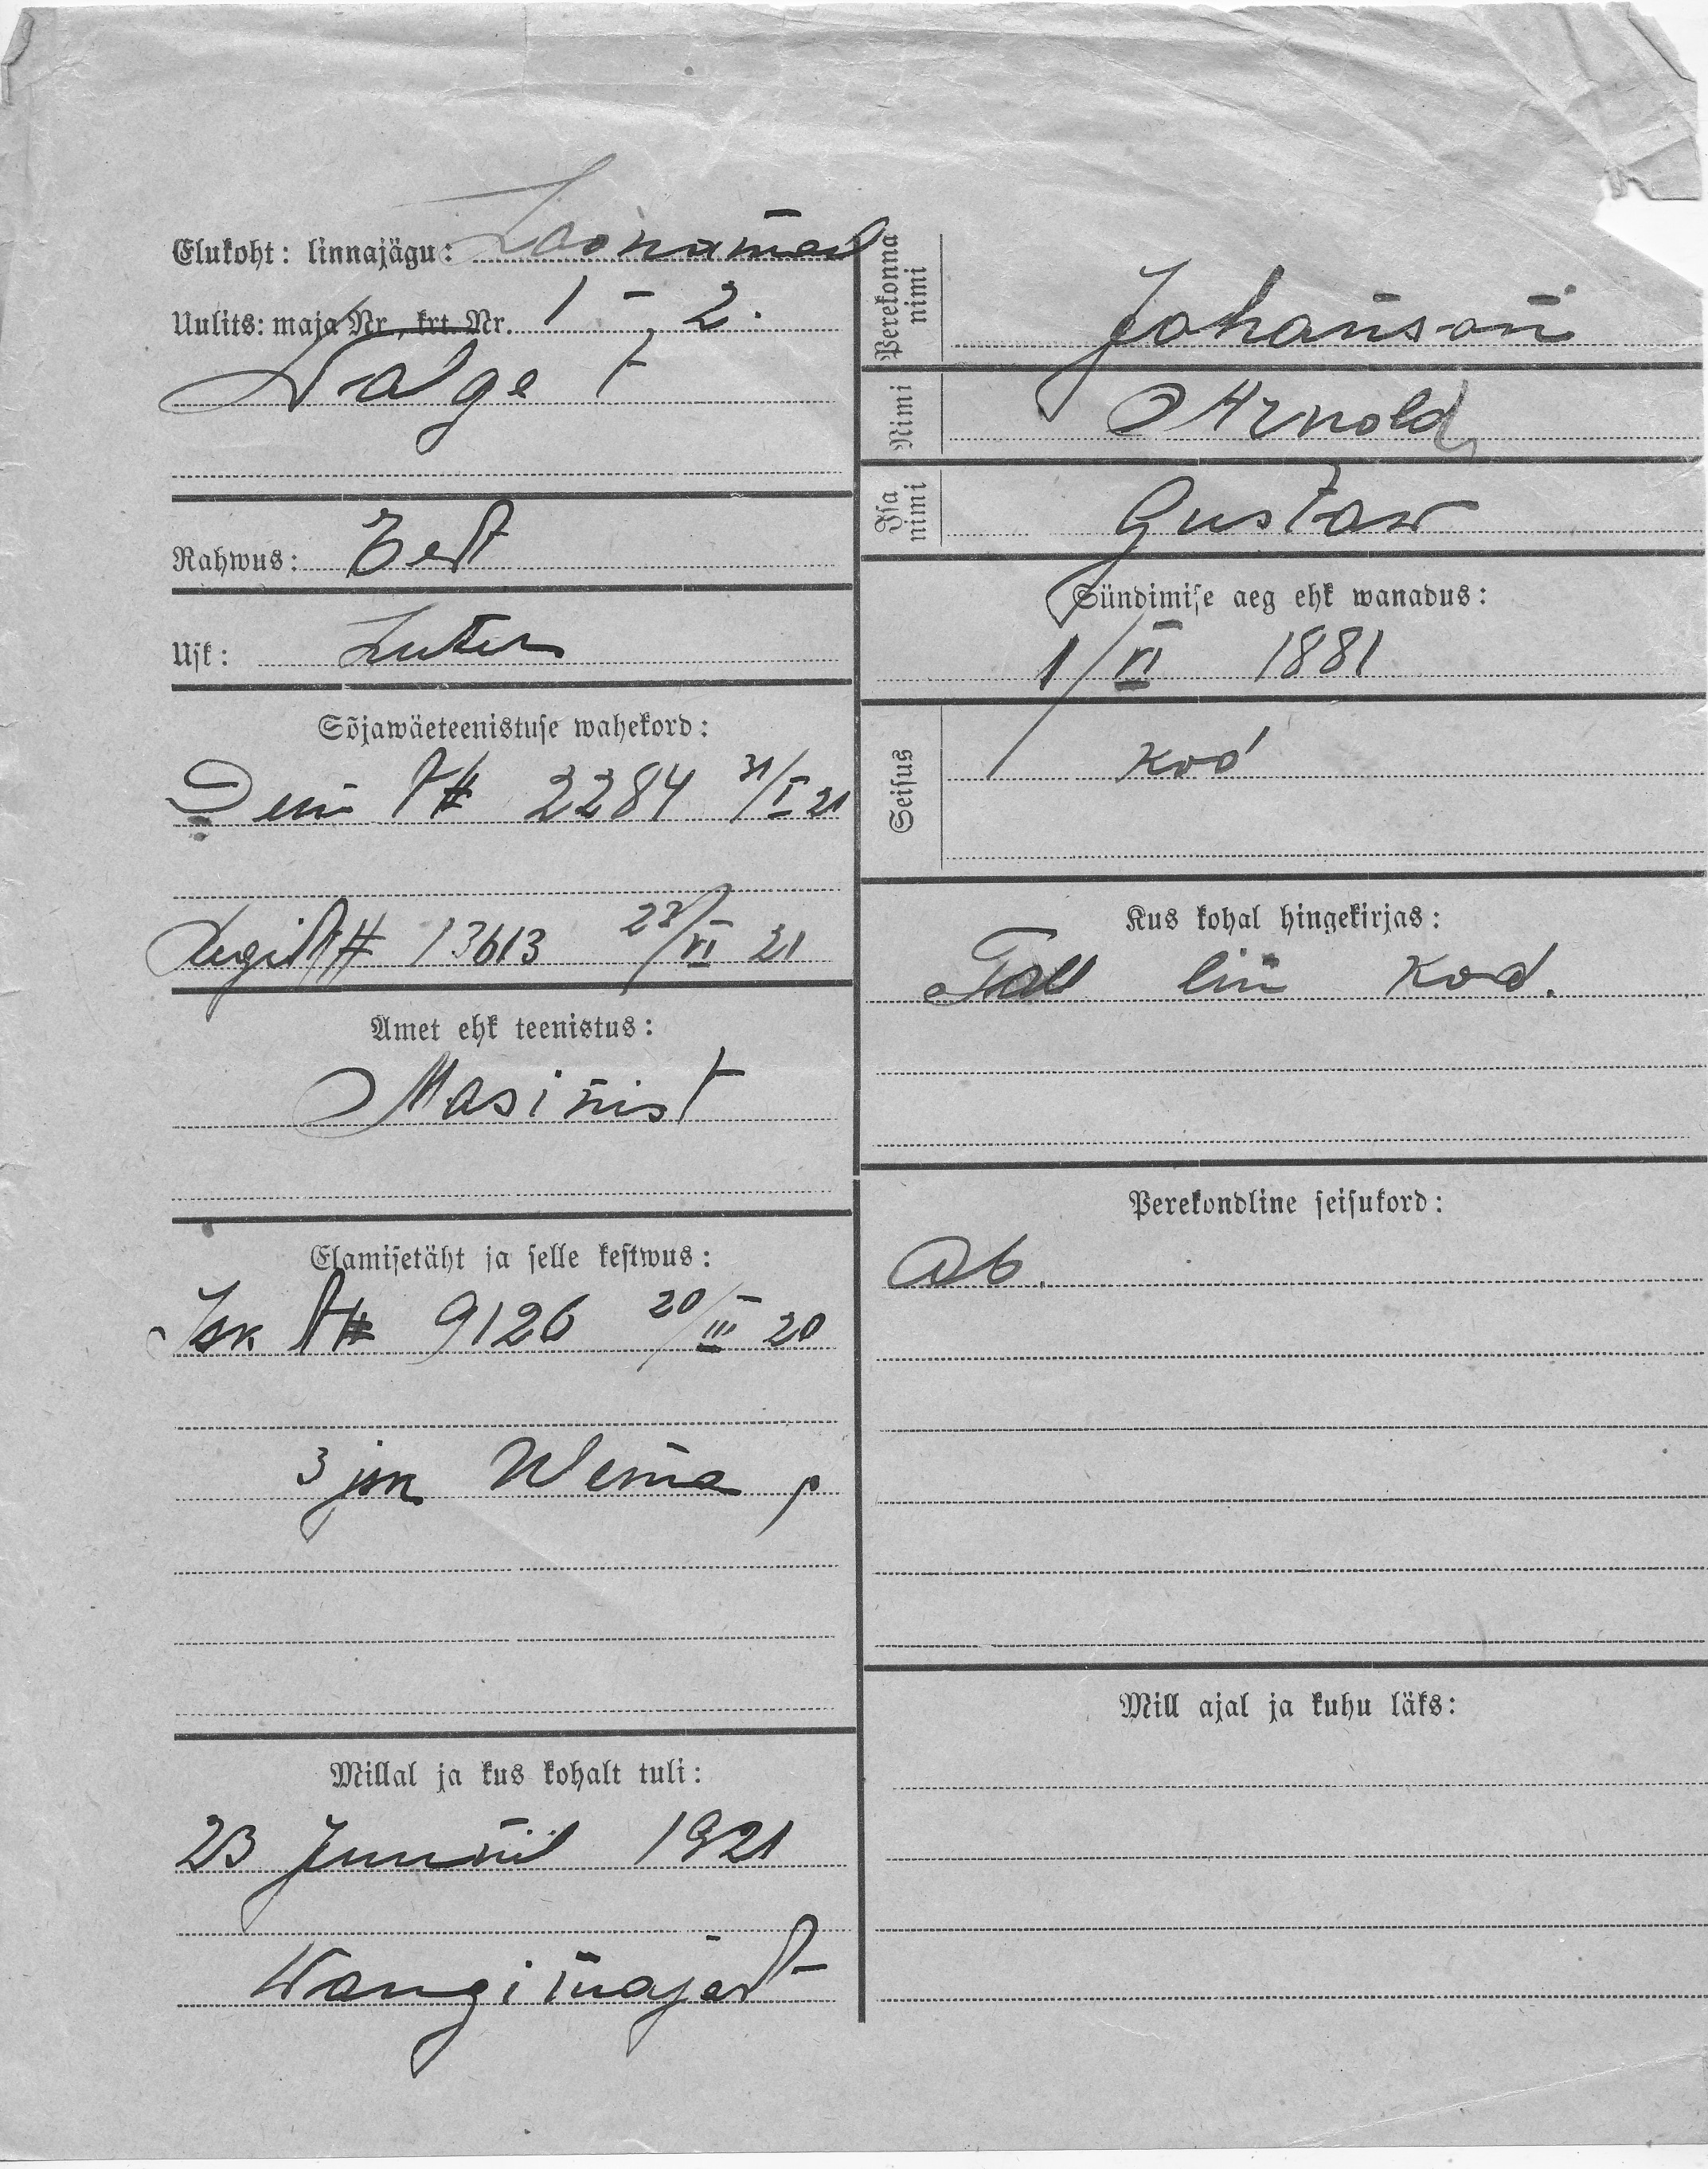 Elukoht: linnajägu: Loonamäed
Uulits: maja Nr., krt. Nr. 1 – 2.
Walge t
Rahwus: Eest
Usk: Luter
Sõjawäeteenistuse wahekord:
Dem t# 2284 31/I 21
Regist# 13613 23/VI 21
Amet ehk teenistus:
Masinist
Elamisetäht ja selle kestwus:
Isk t# 9126 20/III 20
3 jsk Wene p
Millal ja kus kohalt tuli:
23 Juunil 1921
Wangimajast
Perekonna nimi
Johanson
Nimi
Arnold
Isa nimi
Gustaw
Sündimise aeg ehk wanadus:
1/VI 1881
Seisus
Kod
Kus kohal hingekirjas:
Tall lin Kod.
Perekondline seisukord:
Ab.
Mill ajal ja kuhu läks: